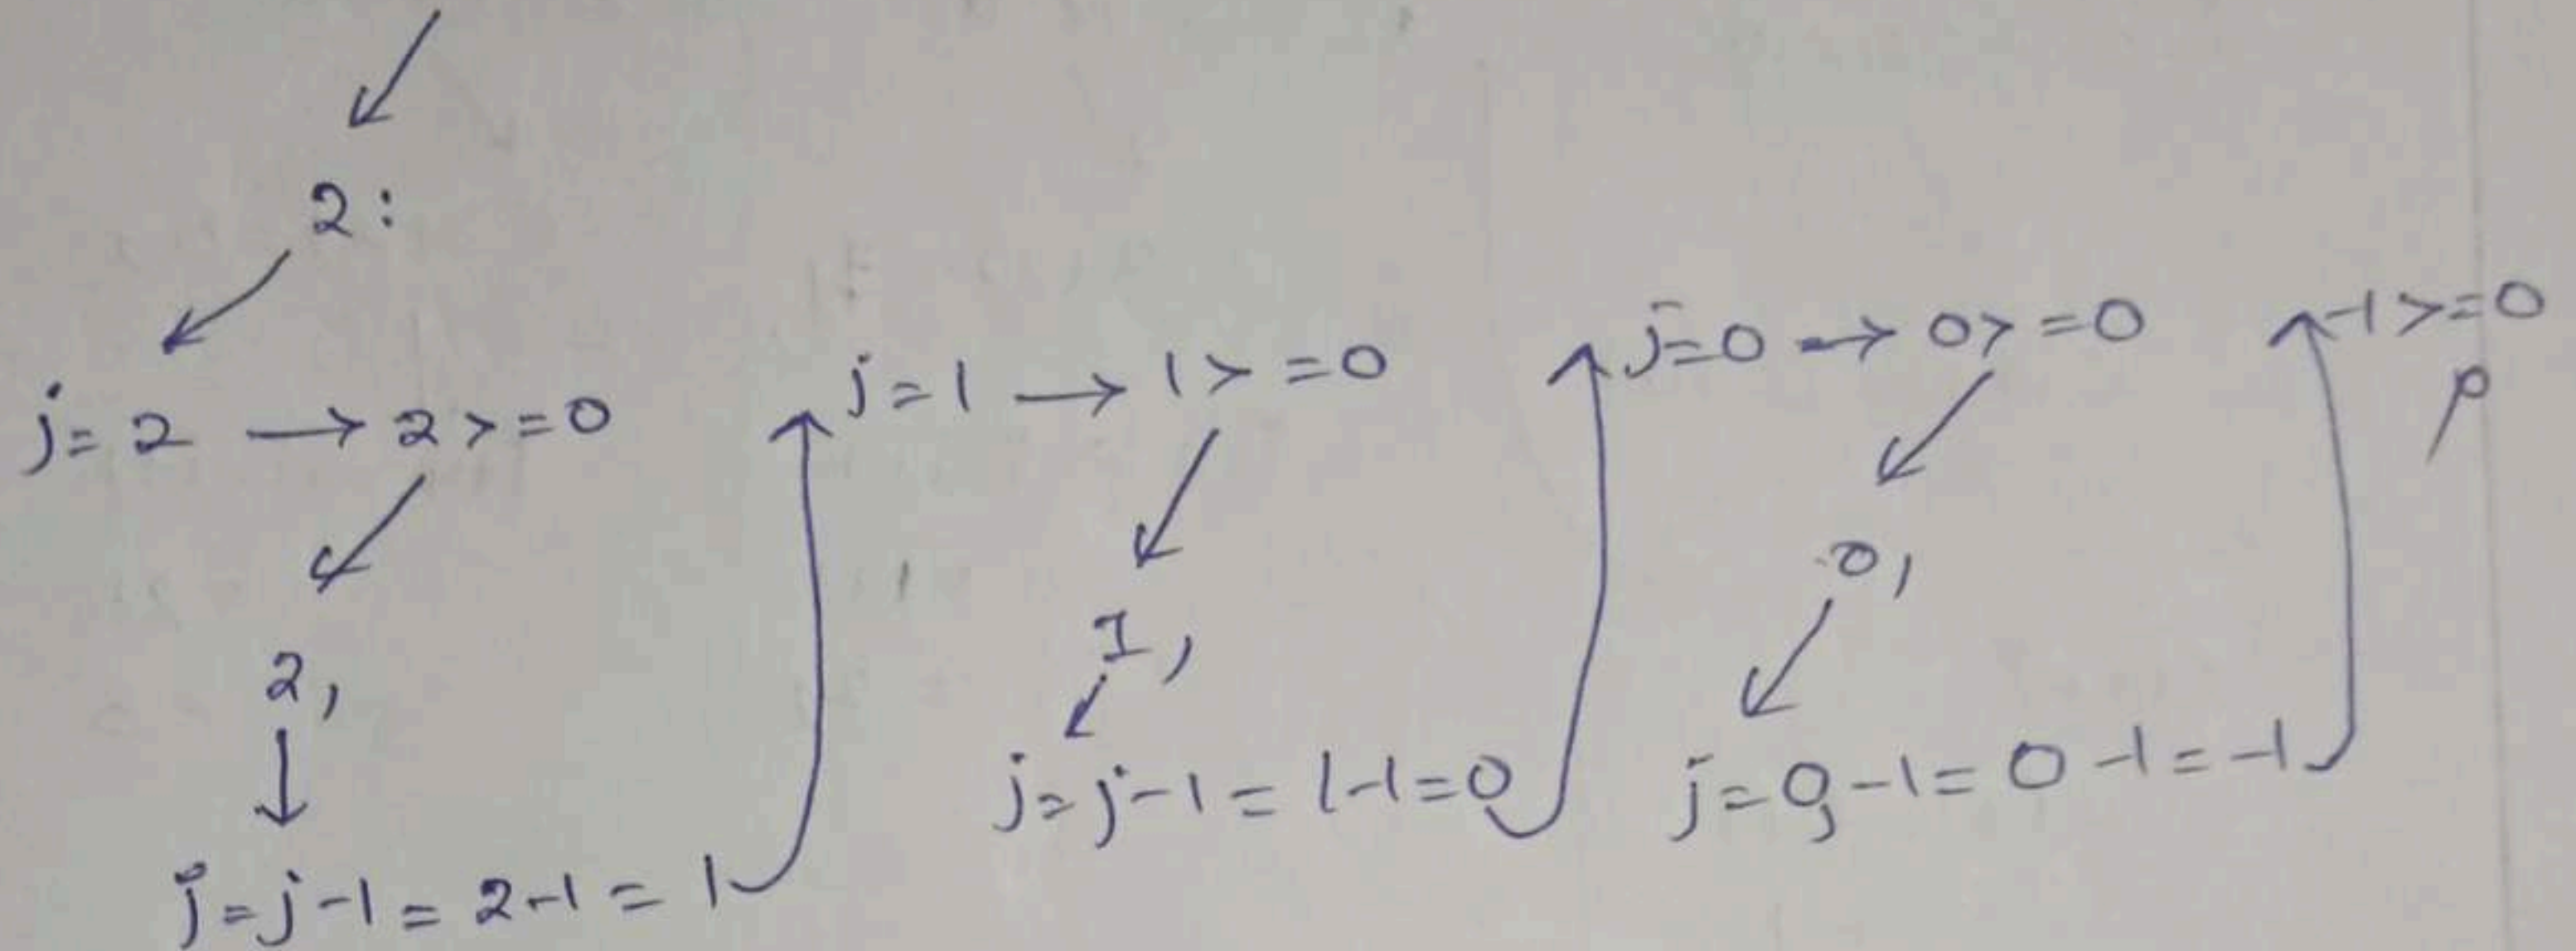 2:
j = 2 → 2 > = 0
2,
j = j - 1 = 2 - 1 = 1
j = 1 → 1 > = 0
1,
j = j - 1 = 1 - 1 = 0
j = 0 → 0 > = 0
0,
j = - 1 = 0 - 1 = - 1
-1 > = 0